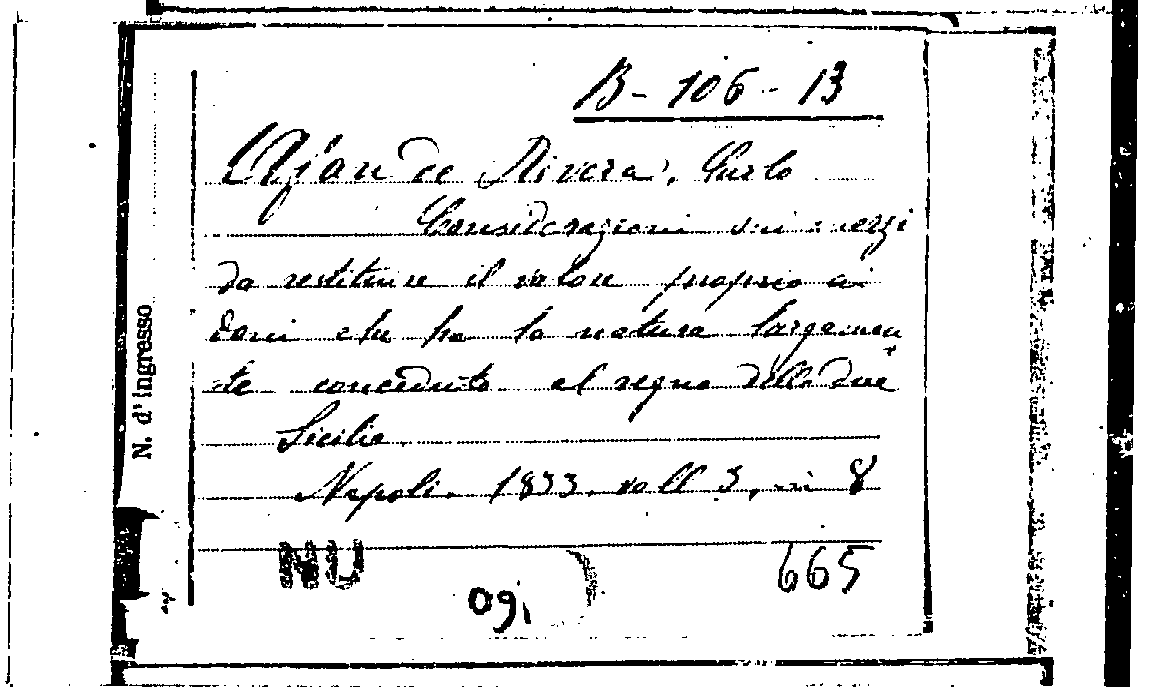 B - 106 - 13
Afan de Rivera, Carlo
Considerazioni sui mezzi
da restituire il valore proprio ai
doni che ha la natura largamen
te conceduto al regno delle due
Sicilie.
Napoli. 1833. voll 3, in 8
NU
665
N. d'ingresso